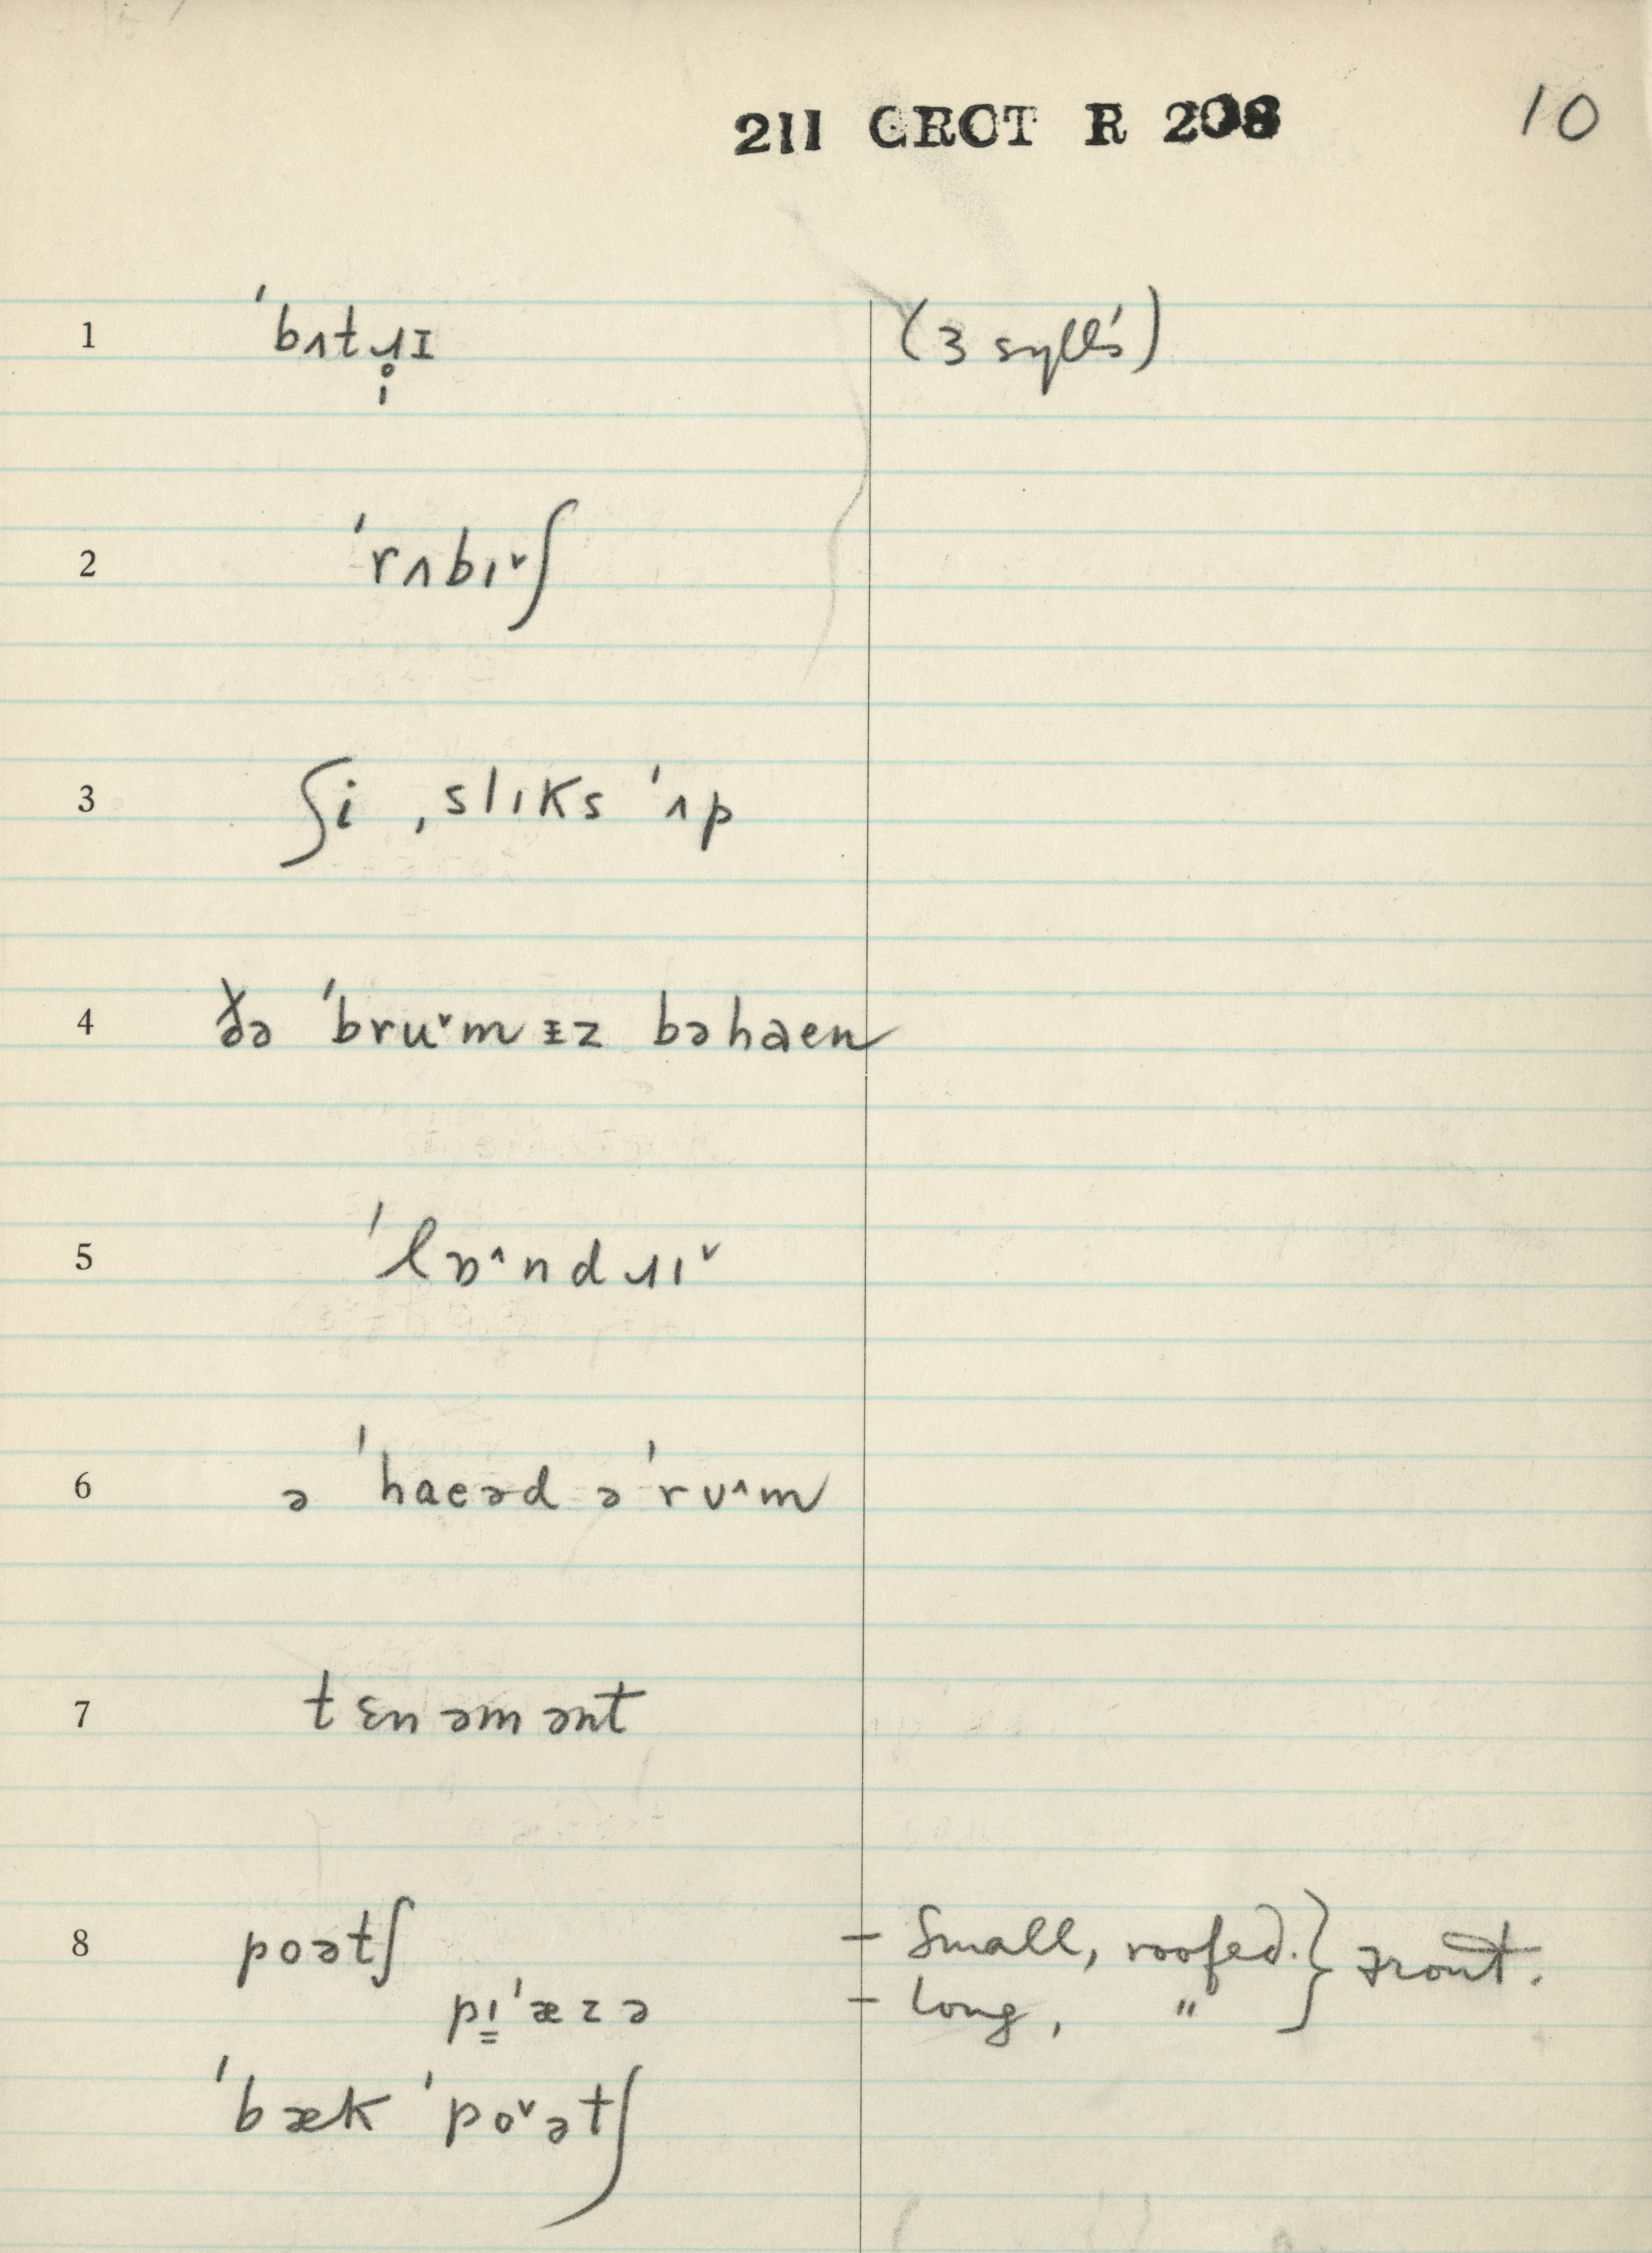 211 CROT R 208
10
1 ˈbʌtɹ̩̊ɪ (3 sylls)
2 ˈrʌbɪ˅ʃ
3 ʃi ˌslɪks ˈʌp
4 ðə ˈbru˅mᵻz bəhaen
5 ˈlɒ˄ndɹɪ˅
6 ə ˈhaeəd ə ˈrʊ˄m
7 tɛnəmənt
8 poətʃ – Small, roofed. } Front.
pɪ̳ˈæzə – long, "
ˈbæk ˈpo˅ətʃ